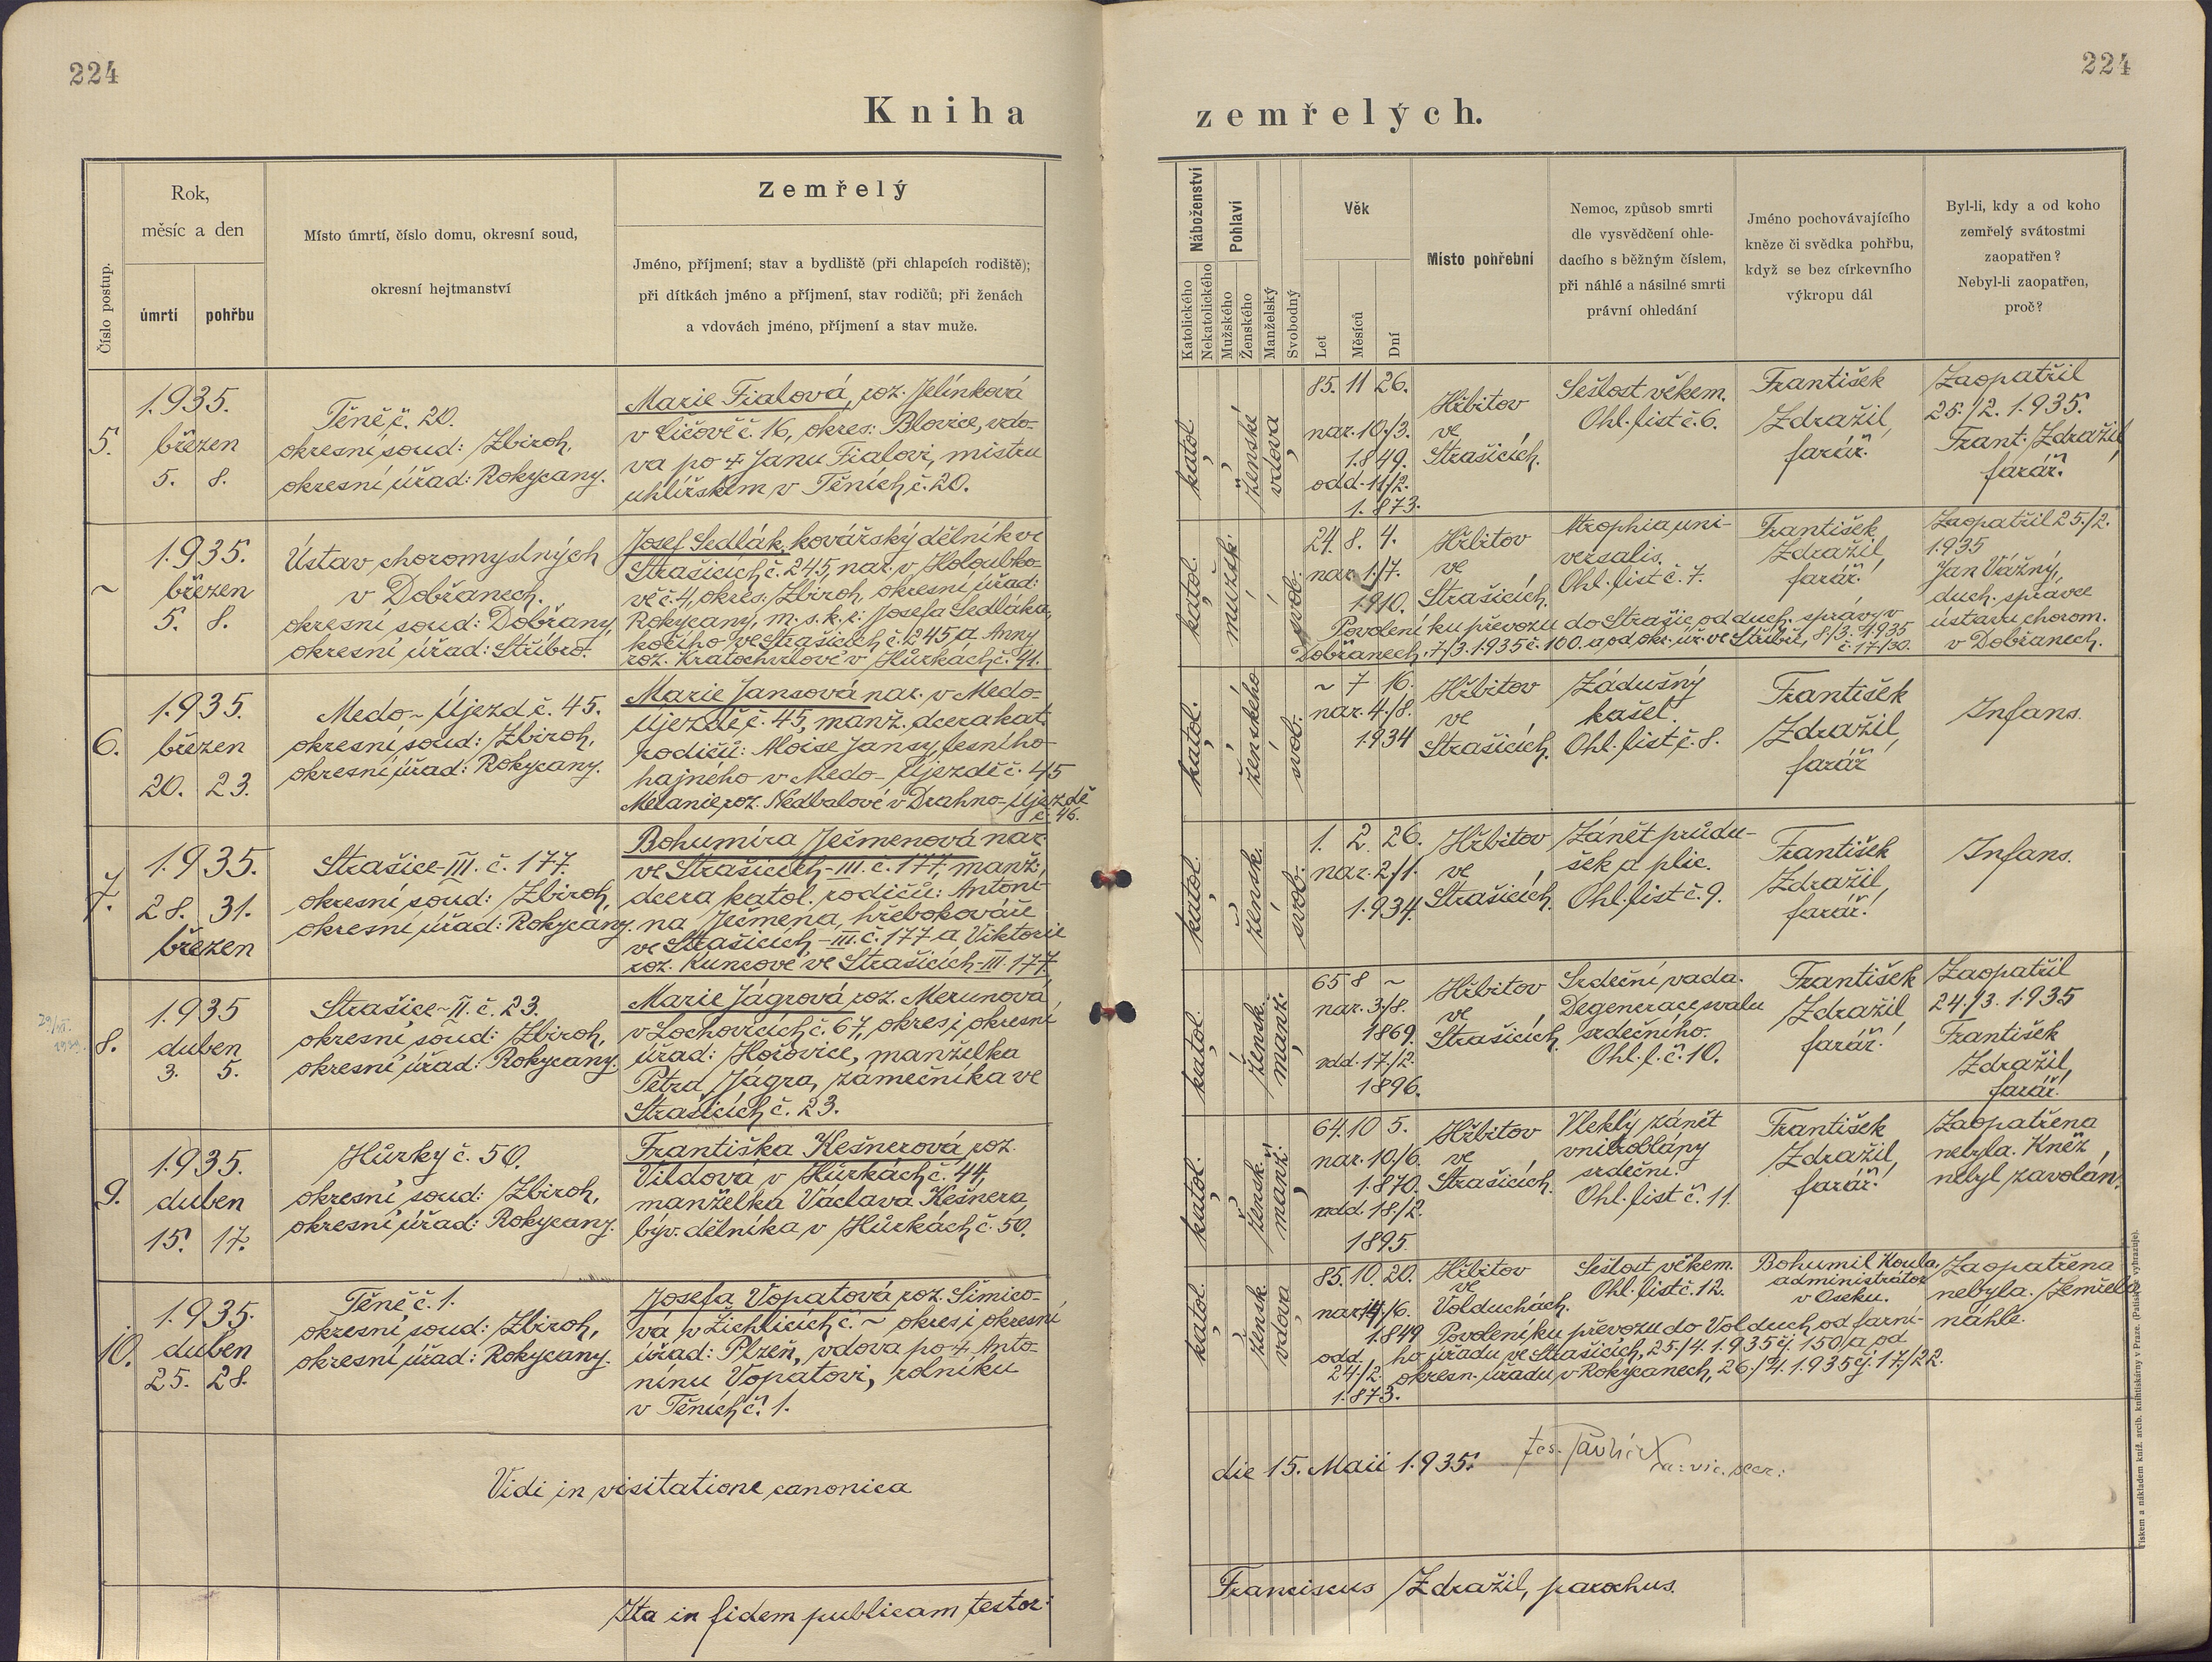 224
224
Kniha
zemřelých.
Číslo postup.
Rok,
měsíc a den
úmrtí
pohřbu
Místo úmrtí, číslo domu, okresní soud,
okresní hejtmanství
Zemřelý
Jméno, příjmení; stav a bydliště (při chlapcích rodiště);
při dítkách jméno a příjmení, stav rodičů; při ženách
a vdovách jméno, příjmení a stav muže.
Náboženství
Katolického
Nekatolického
Pohlaví
Mužského
Ženského
Manželský
Svobodný
Věk
Let
Měsíců
Dní
Místo pohřební
Nemoc, způsob smrti
dle vysvědčení ohle-
dacího s běžným číslem,
při náhlé a násilné smrti
právní ohledání
Jméno pochovávajícího
kněze či svědka pohřbu,
když se bez církevního
výkropu dál
Byl-li, kdy a od koho
zemřelý svátostmi
zaopatřen?
Nebyl-li zaopatřen,
proč?
5.
1.935.
březen
5. 8.
Těně č. 20.
okresní soud: Zbiroh,
okresní úřad: Rokycany.
Marie Fialová, roz. Jelínková
v Číčově č. 16, okres: Blovice, vdo-
va po † Janu Fialovi, mistru
uhlířském v Těních č. 20.
katol.
ženské
vdova
85. 11 26.
nar. 10./3.
1.849.
odd. 11/2.
1.873.
Hřbitov
ve
Strašicích.
Sešlost věkem.
Ohl. list č. 6.
František
Zdražil,
farář.
Zaopatřil
25./2. 1.935.
Frant. Zdražil,
farář.
~
1.935.
březen
5. 8.
Ústav choromyslných
v Dobřanech.
okresní soud: Dobřany,
okresní úřad: Stříbro.
Josef Sedlák, kovářský dělník ve
Strašicích č. 245, nar. v Holoubko-
vě č. 4, okres: Zbiroh, okresní úřad:
Rokycany, m. s. k. r: Josefa Sedláka,
kočího ve Strašicích č. 245 a Anny
roz. Kratochvilové v Hůrkách č. 41.
katol.
mužsk.
svob.
24. 8. 4.
nar. 1./7.
1.910.
Hřbitov
ve
Strašicích.
Atrophia uni-
versalis.
Ohl. list č. 7.
František
Zdražil,
farář.
Zaopatřil 25./2.
1.935
Jan Vážný,
duch. správce
ústavu chorom.
v Dobřanech.
Povolení ku převozu do Strašic od duch. správy v
Dobřanech, 7/3. 1.935 č. 100. a od okr. úř. ve Stříbře, 8/3. 1.935
č. 17/30.
6.
1.935.
březen
20. 23.
Medo-Újezd č. 45.
okresní soud: Zbiroh,
okresní úřad: Rokycany.
Marie Jansová nar. v Medo-
Újezdě č. 45, manž. dcera kat.
rodičů: Moise Jansy, lesního
hajného v Medo-Újezdě č. 45
Melanie roz. Nedbalové v Drahno-Újezdě
č. 46.
katol.
ženského
svob.
~ 7 16.
nar. 4./8.
1.934
Hřbitov
ve
Strašicích.
Zádušný
kašel.
Ohl. list č. 8.
František
Zdražil,
farář
Infans.
7.
1.935.
28. 31.
březen
Strašice-III. č. 177.
okresní soud: Zbiroh,
okresní úřad: Rokycany.
Bohumíra Ječmenová nar.
ve Strašicích-III. č. 177, manž.
dcera katol. rodičů: Antoní-
na Ječmena, hřebokováře
ve Strašicích-III. č. 177 a Viktorie
roz. Kuncové ve Strašicích-III. 177.
katol.
žensk.
svob.
1. 2. 26.
nar. 2./1.
1.934.
Hřbitov
ve
Strašicích.
Zánět průdu-
šek a plic.
Ohl. list č. 9.
František
Zdražil,
farář.
Infans.
8.
1.935
duben
3. 5.
Strašice-II. č. 23.
okresní soud: Zbiroh,
okresní úřad: Rokycany.
Marie Jágrová roz. Merunová
v Lochovicích č. 67, okres i okresní
úřad: Hořovice, manželka
Petra Jágra, zámečníka ve
Strašicích č. 23.
katol.
žensk.
manž.
65 8 ~
nar. 3./8.
1869.
odd. 17./2.
1896.
Hřbitov
ve
Strašicích.
Srdeční vada.
Degenerace svalu
srdečního.
Ohl. l. č. 10.
František
Zdražil,
farář.
Zaopatřil
24./3. 1.935
František
Zdražil,
farář.
9.
1.935.
duben
15. 17.
Hůrky č. 50.
okresní soud: Zbiroh,
okresní úřad: Rokycany.
Františka Kešnerová, roz.
Vildová v Hůrkách č. 44,
manželka Václava Kešnera,
býv. dělníka v Hůrkách č. 50.
katol.
žensk.
manž.
64. 10 5.
nar. 10./6.
1.870.
odd. 18./2.
1895.
Hřbitov
ve
Strašicích.
Vleklý zánět
vnitroblány
srdeční.
Ohl. list č. 11.
František
Zdražil,
farář.
Zaopatřena
nebyla. Kněz
nebyl zavolán.
10.
1.935.
duben
25. 28.
Těně č. 1.
okresní soud: Zbiroh,
okresní úřad: Rokycany.
Josefa Vopatová, roz. Šimico-
vá v Žichlicích č. ~ okres i okresní
úřad: Plzeň, vdova po † Anto-
nínu Vopatovi, rolníku
v Těních č. 1.
katol.
žensk.
vdova
85. 10. 20.
nar. 14./6.
1.849
odd.
24./2.
1.873.
Hřbitov
ve
Volduchách.
Sešlost věkem.
Ohl. list č. 12.
Bohumil Koula,
administrátor
v Oseku.
Zaopatřena
nebyla. Zemřela
náhle.
Povolení ku převozu do Volduch od farní-
ho úřadu ve Strašicích, 25./4. 1.935 čj. 150/a od
okresn. úřadu v Rokycanech, 26./4. 1.935 čj. 17./22.
Vidi in visitatione canonica
die 15. Maii 1.935.
a: vic. secr:
Ita in fidem publicam testor:
Franciscus Zdražil, parochus.
Tiskem a nákladem kníž. arcib. knihtiskárny v Praze. (Patisk se vyhrazuje).